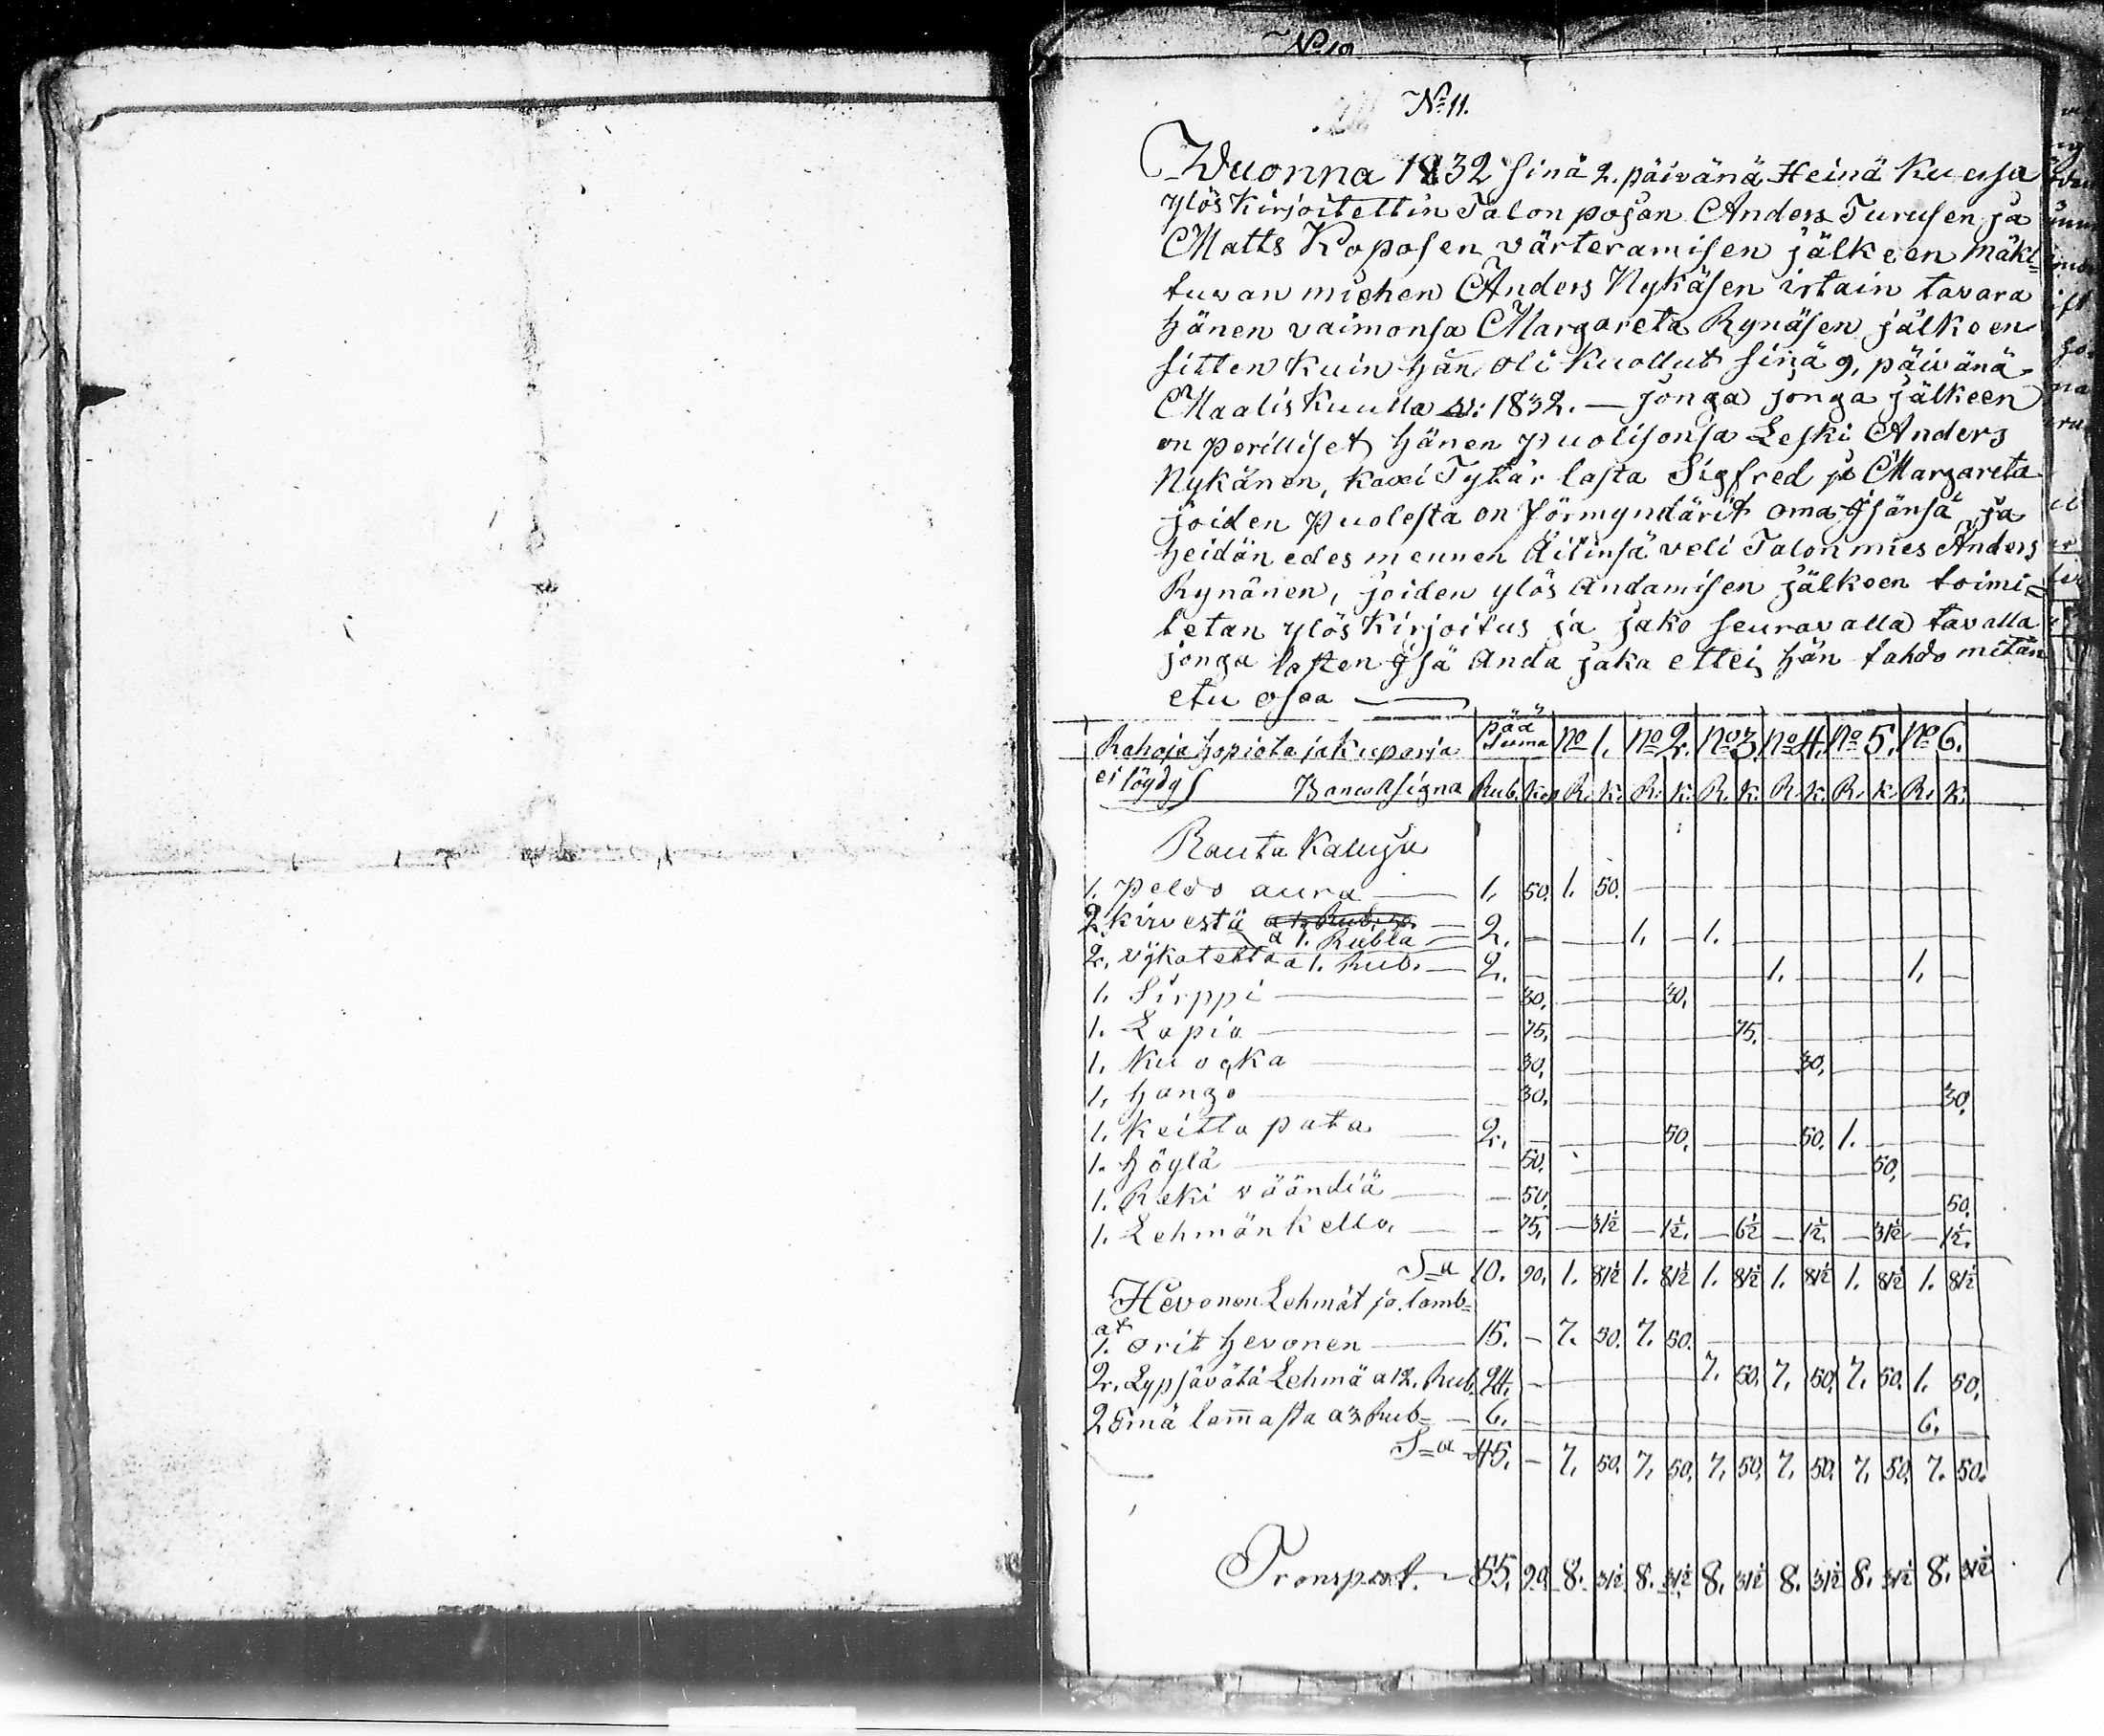 No 10
No 11.
Wuonna 1832 sinä 2. päivänä Heinä Kuusa
ylös Kirjoitettin Talon pojan Anders Turusen ja
Matts Koposen värteramisen jälkeen mäki=
tuvan miehen Anders Nykäsen irtain tavara
hänen vaimonsa Margareta Rynäsen jälkeen
sitten Kuin hän oli Kuollut sinä 9. päivänä
Maalis Kuulla v: 1832. — jonga jonga jälkeen
on perilliset hänen puolisonsa Leski Anders
Nykänen, kaxi Tytär lasta Sigfred ja Margareta
joiden puolesta on förmyndärit oma Isänsä ja
heidän edes mennen Äitinsä veli Talon mies Anders
Rynänen, joiden ylös andamisen jälkeen toimi=
tetan ylös Kirjoitus ja jako seuravalla tavalla
jonga lasten Isä anda jaka ettei hän tahdo mitän
etu osaa —
Rahoja hopiota ja kuparia pää Suma No 1. No 2. No 3. No 4. No 5. No 6.
ei löydy Banco Asigna Rub. Kop R. K. R. K. R. K. R. K. R. K. R. K.
Rauta Kaluja
1. peldo aura — 1. 50. 1. 50. —
2 kirvestä a 1. Rubla — 2. — 1. — 1. —
2. vikatetta a 1. Rub. — 2. — 1. — 1. —
1. Sirppi — 30. — 30. —
1. Lapio — 75. — 75. —
1. Kuocka — 30. — 30. —
1. hango — 30. — 30.
1. Keitto pata — 2. — 50. — 50. 1. —
1. höylä — 50. — 50. —
1. Reki väändiä — 50. — 50.
1. Lehmän kello — 75. — 31½ — 1½. — 6½ — 1½. — 31½ — 1½.
S=a 10. 90. 1. 81½ 1. 81½ 1. 81½ 1. 81½ 1. 81½ 1. 81½
Hevonen Lehmät ja lamb=
at
1. orit hevonen — 15. — 7. 50. 7. 50. —
2. Lypsävätä Lehmä a 12. Rub. 24. — 7. 50. 7. 50. 7. 50. 1. 50.
2 Emä lammasta a 3 Rub= — 6. — 6. —
S=a 45. — 7. 50. 7. 50. 7. 50. 7. 50. 7. 50. 7. 50.
Transport. — 55. 90. 8. 31½ 8. 31½ 8. 31½ 8. 31½ 8. 31½ 8. 31½